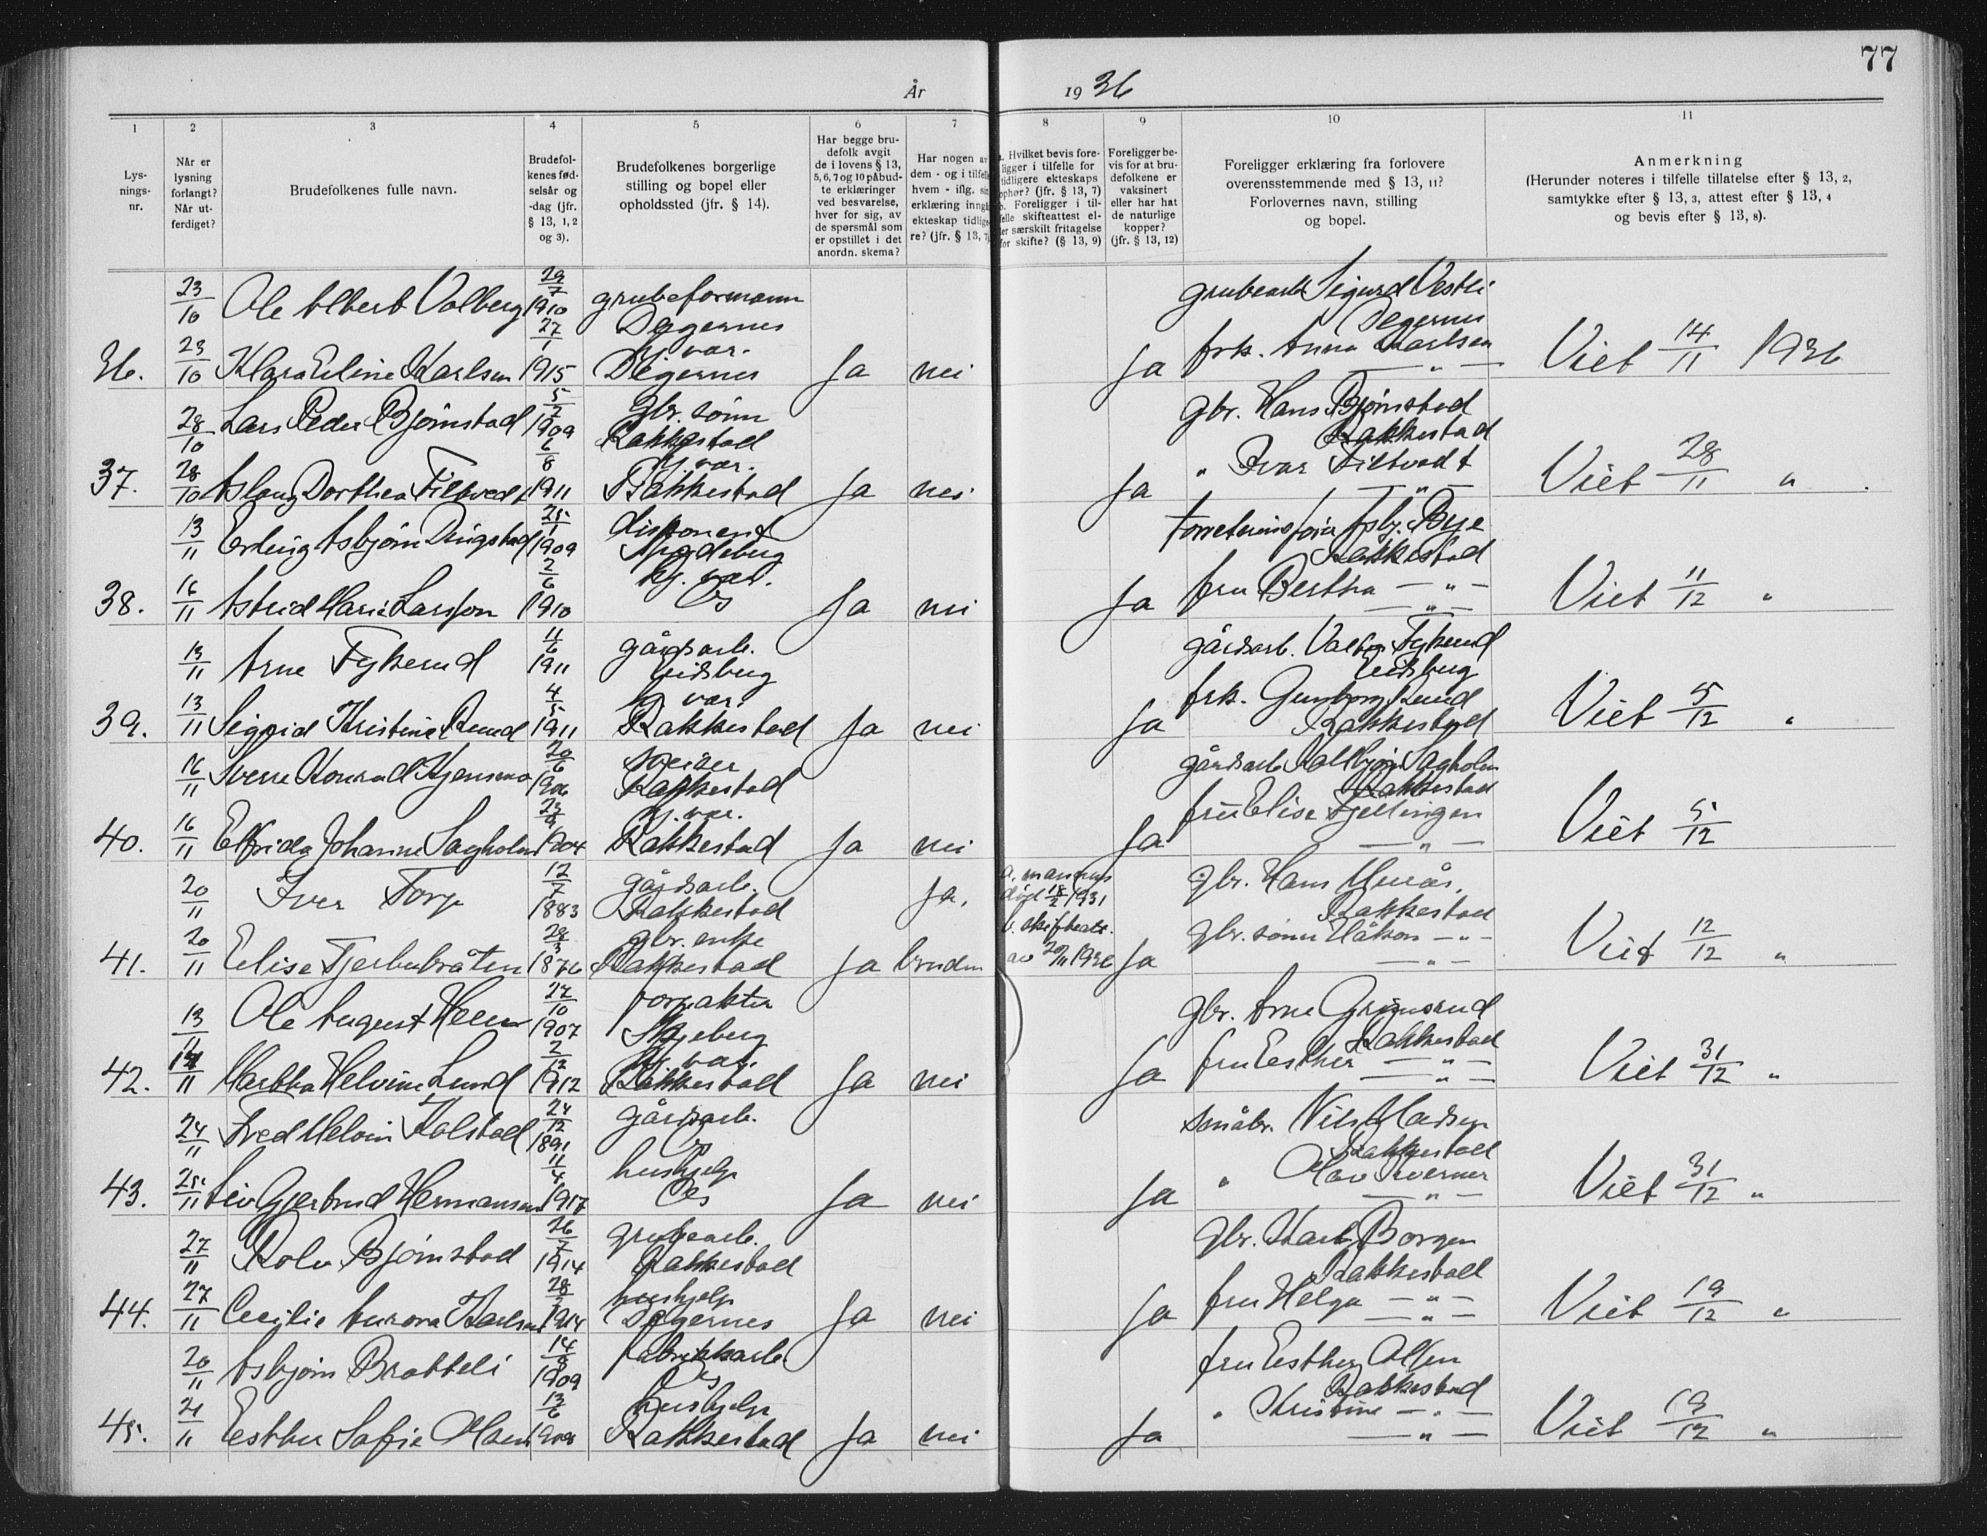 77
År 1936
1 2 3 4 5 6 7 8 9 10 11
Lysningsnr.
Når er lysning forlangt? Når utferdiget?
Brudefolkenes fulle navn.
Brudefolkenes fødselsår og -dag (jfr. § 13, 1, 2 og 3).
Brudefolkenes borgerlige stilling og bopel eller opholdssted (jfr. § 14).
Har begge brudefolk avgit de i lovens § 13, 5, 6, 7 og 10 påbudte erklæringer ved besvarelse, hver for sig, av de spørsmål som er opstillet i det anordn. skema?
Har nogen av dem - og i tilfelle hvem - iflg. sin erklæring inngått ekteskap tidligere? (jfr. § 13, 7)
a. Hvilket bevis foreligger i tilfelle for tidligere ekteskaps ophør? (jfr. § 13, 7) b. Foreligger i tilfelle skifteattest eller særskilt fritagelse for skifte? (§ 13, 9)
Foreligger bevis for at brudefolkene er vaksinert eller har hat de naturlige kopper? (jfr. § 13, 12)
Foreligger erklæring fra forlovere overensstemmende med § 13, 11? Forlovernes navn, stilling og bopel.
Anmerkning (Herunder noteres i tilfelle tillatelse efter § 13, 2, samtykke efter § 13, 3, attest efter § 13, 4 og bevis efter § 13, 8).
23/10 Ole Albert Volberg 29/7 1910 grubeformann Degernes grubearb. Sigurd Vestli Degernes
36. 23/10 Klara Eline Karlsen 27/1 1915 hj. var. Degernes Ja nei Ja frk. Anna Karlsen — " — Viet 14/11 1936
28/10 Lars Peder Bjørnstad 5/7 1909 gbr. sønn Rakkestad gbr. Hans Bjørnstad Rakkestad
37. 28/10 Aslaug Dorthea Filtvedt 6/8 1911 hj. var. Rakkestad Ja nei Ja " Ivar Filtvedt — " — Viet 28/11 "
13/11 Erling Asbjørn Ringstad 25/1 1909 disponent Spydeberg Forretningsfører Asbj. Bye Rakkestad
38. 16/11 Astrid Marie Larsson 2/6 1910 hj. var. Os Ja nei Ja fru Bertha — " — — " — Viet 11/12 "
13/11 Arne Fykerud 11/6 1911 gårdsarb. Eidsberg gårdsarb. Fykerud Eidsberg
39. 13/11 Sigrid Kristine Rud 4/5 1911 hj. var. Rakkestad Ja nei Ja frk. Gunborg Rud Rakkestad Viet 5/12 "
16/11 Sverre Konrad Kjensmo 20/6 1906 sveiser Rakkestad gårdsarb. Sagholen Rakkestad
40. 16/11 Elfrida Johanne Sagholen 1904 hj. var. Rakkestad Ja nei Ja fru Elise Fjellingen — " — Viet 5/12
20/11 Iver Torp 12/7 1883 gårdsarb. Rakkestad ja, a. mannens død 18/2 1931 gbr. Hans Rakkestad
41. 20/11 Elise Tjerbubråten 28/3 1876 gbr. enke Rakkestad Ja bruden b. skifteatt. av 20/11 1936 Ja gbr. sønn Håkon — " — — " — Viet 12/12 "
13/11 Ole August Heen 27/10 1907 forpakter Skjeberg gbr. Arne Grimsrud Rakkestad
42. 14/11 Martha Helvine Lund 2/12 1912 hj. var. Rakkestad Ja nei Ja fru Esther — " — — " — Viet 31/12 "
24/11 Fred Melvin Kolstad 24/12 1891 gårdsarb. Os småbr. Nils Madsen Rakkestad
43. 25/11 Liv Gjertrud Hermansen 11/4 1917 hushjelp Os Ja nei Ja " Olav Sverner — " — Viet 31/12 "
27/11 Rolv Bjørnstad 26/7 1914 grubearb. Rakkestad gbr. Karl Borgen Rakkestad
44. 27/11 Cecilie Aurora Karlsen 1914 hushjelp Degernes Ja nei Ja fru Helga — " — — " — Viet 19/12 "
20/11 Asbjørn Bratteli 14/8 1909 fabrikkarb. Os fru Esther Olsen Rakkestad
45. 21/11 Esther Sofie Olsen 13/6 1908 hushjelp Rakkestad Ja nei Ja " Kristine — " — — " — Viet 19/12 "